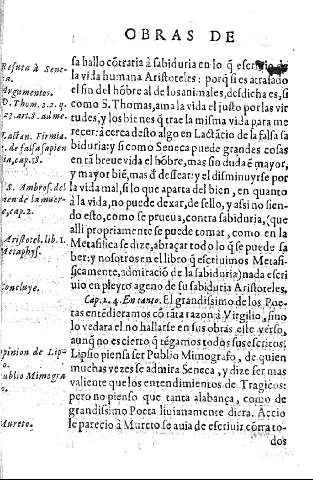 OBRAS DE
Refuta à Sene-
ca.
Argumentos.
D. Thom. 2.2. q.
23. art. 8. ad me.
Lactan. Firmia.
de falsa sapien
tia, cap. 18.
S. Ambros. del
bien de la muer-
te, cap. 2.
Aristotel. lib. 1.
Metaphys.
Concluye.
Opinion de Lip-
so.
Publio Mimogra-
fo.
Mureto.
sa hallo cõtraria à sabiduria en lo q̃ escriuio de
la vida humana Aristoteles: porq̃ si es atralado
el sin del hõbre al de los animales, desdicha es, si
como S. Thomas, ama la vida el justo por las vir
tudes, y los bienes q̃ trae la misma vida para me
recer: à cerca desto algo en Lactãcio de la falsa sa
biduria: y si como Seneca puede grandes cosas
en tã breue vida el hõbre, mas sin duda ẽ mayor,
y mayor biẽ, mas d̃ dessear: y el disminuyrse por
la vida mal, si lo que aparta del bien, en quanto
à la vida, no puede dexar, de sello, y assi no sien-
do esto, como se prueua, contra sabiduria, (que
alli propriamente se puede tomar, como en la
Metafisica se dize, abraçar todo lo q̃ se puede sa
ber: y nosotros en el libro q̃ escriuimos Metafi-
sicamente, admiraciõ de la sabiduria) nada escri
uio en pleyto ageno de su sabiduria Aristoteles.
Cap. 2. 4. En tanto. El grandissimo de los Poe-
tas entẽdieramos cõ tãta razõ à Virgilio, sino
lo vedara el no hallarse en sus obras este verso,
aunq̃ no es cierto q̃ tẽgamos todos sus escritos:
Lipsio piensa ser Publio Mimografo, de quien
muchas vezes se admira Seneca, y dize ser mas
valiente que los entendimientos de Tragicos:
pero no pienso que tanta alabança, como de
grandissimo Poeta liuianamente diera. Accio
le parecio à Mureto se auia de escriuir cõtra to-
dos